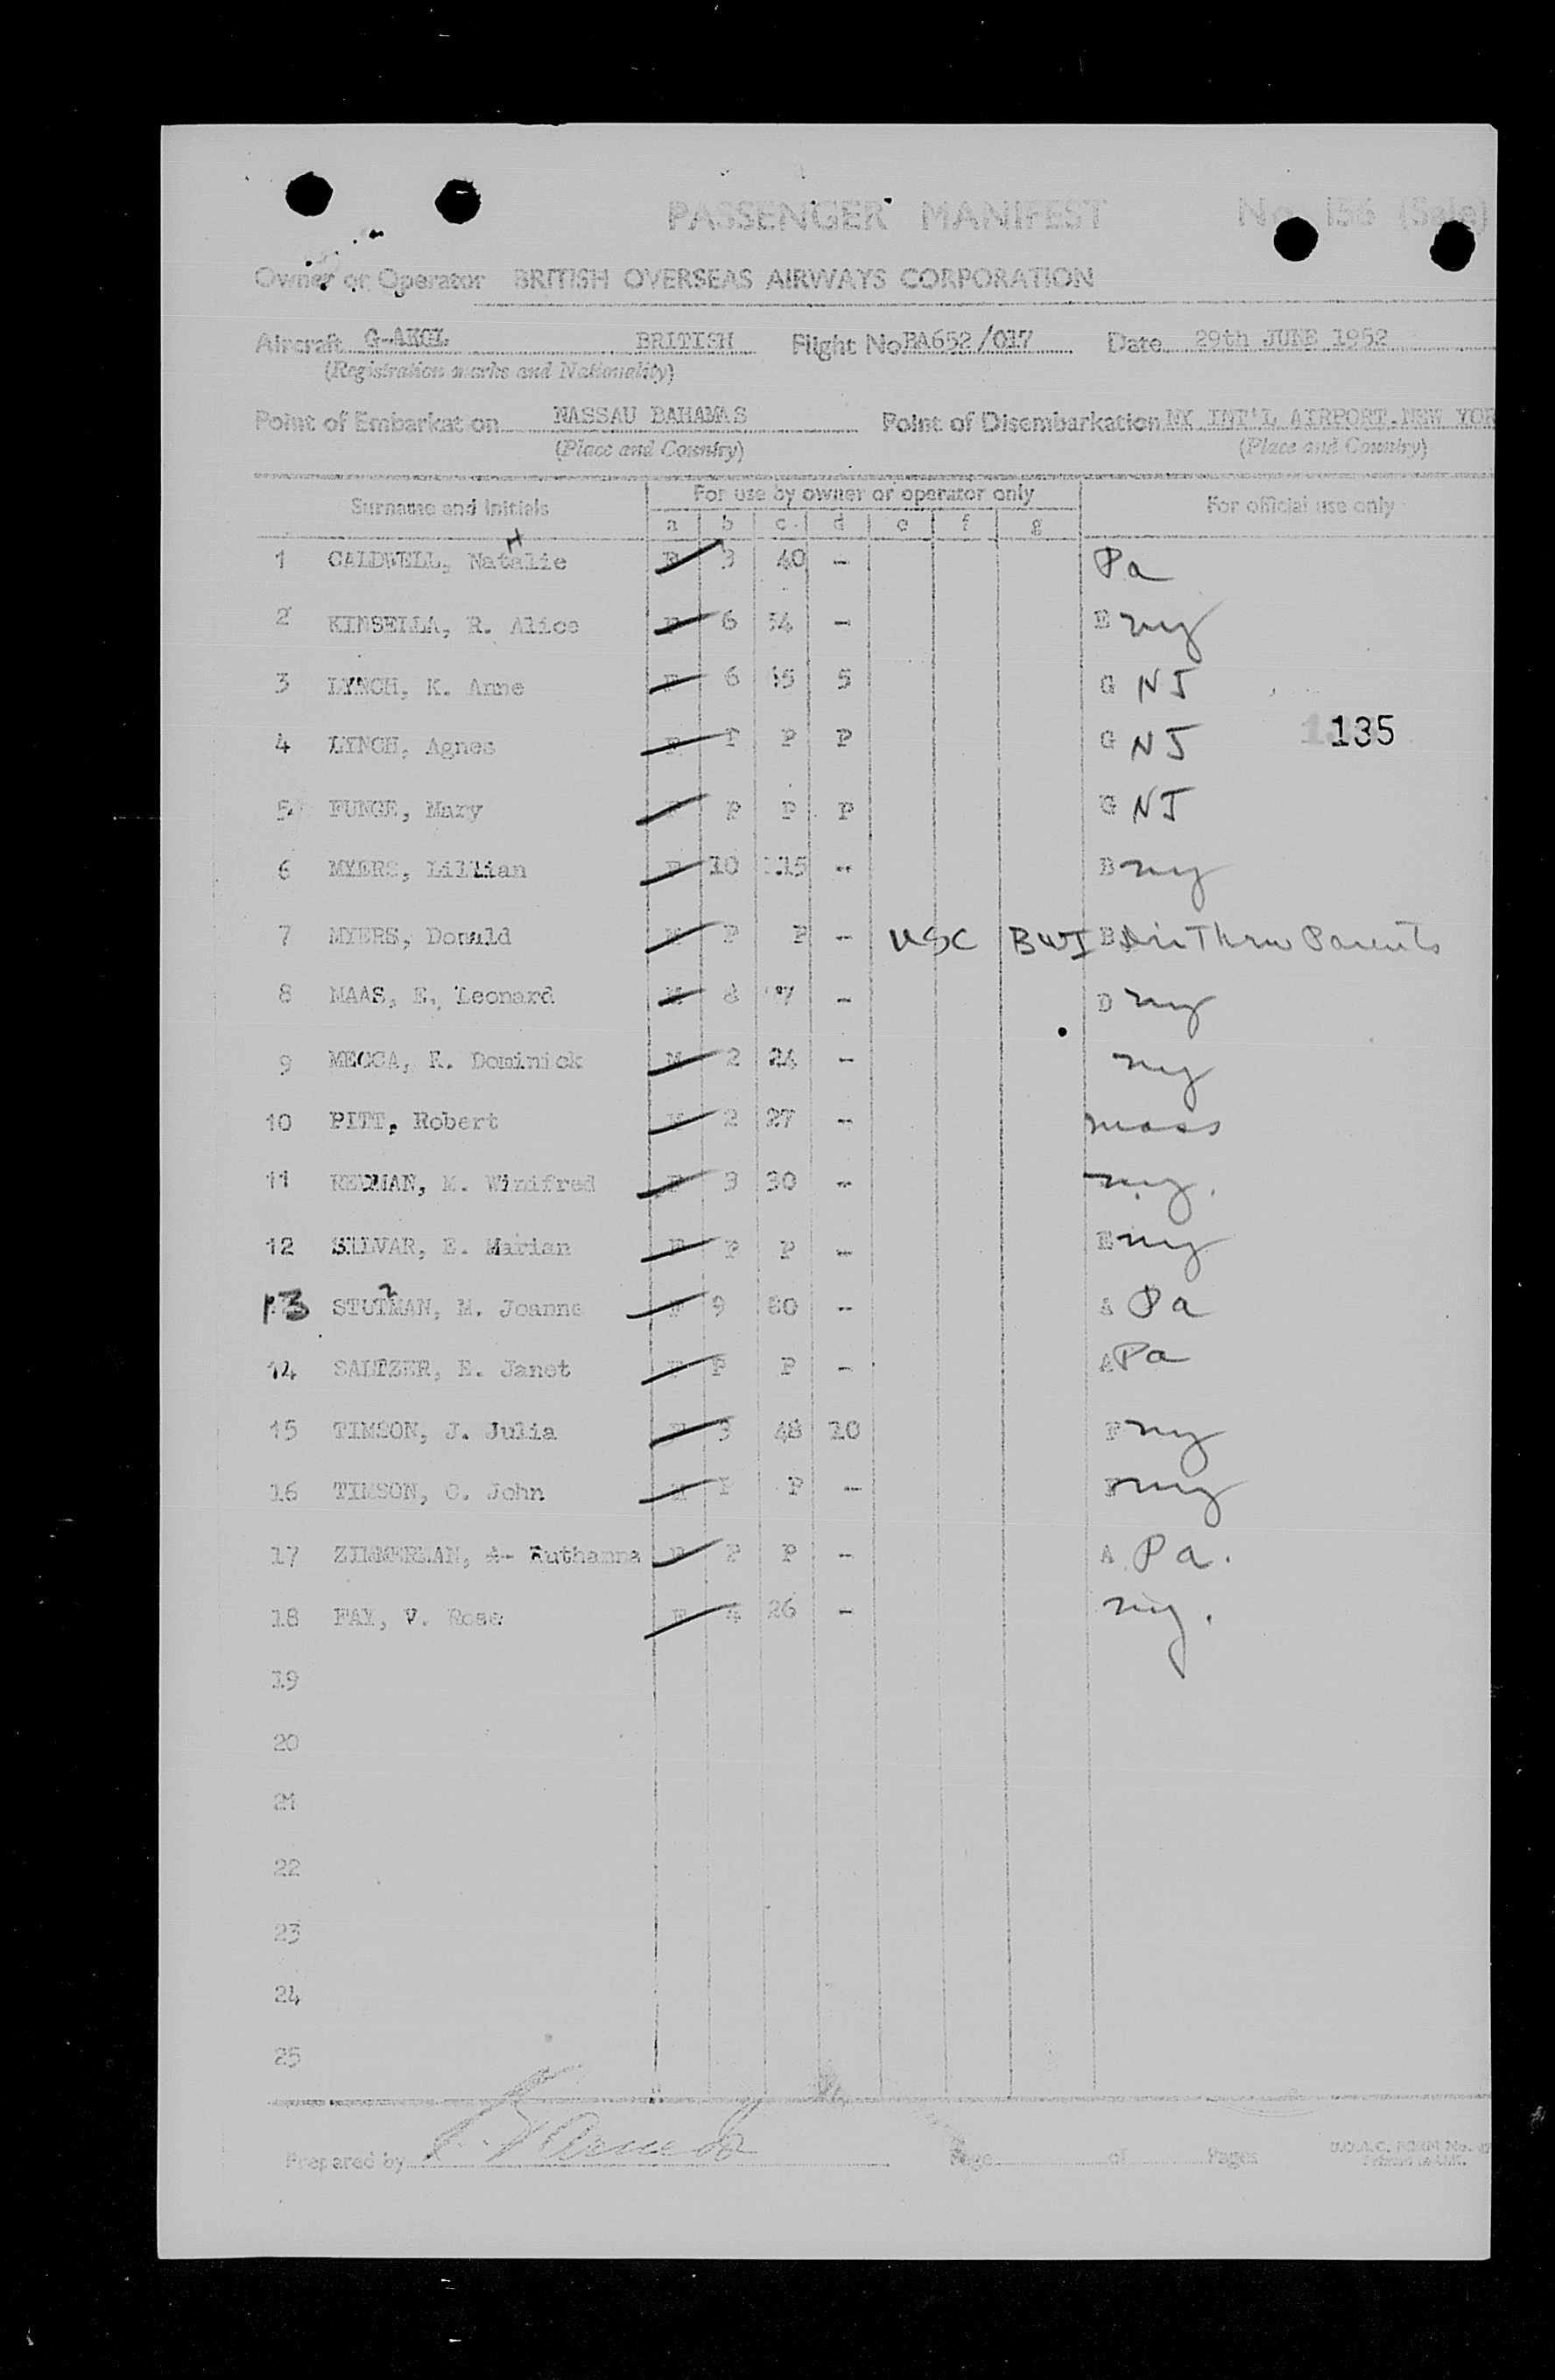 PASSENGER MANIFEST No. 156 (Sale)
Owner or Operator BRITISH OVERSEAS AIRWAYS CORPORATION
Aircraft G-AKGL BRITISH Flight No. BA652/017 Date 29th JUNE 1952
(Registration marks and Nationality)
Point of Embarkation NASSAU BAHAMAS Point of Disembarkation NY INT'L AIRPORT. NEW YOR
(Place and Country) (Place and Country)
Surname and Initials For use by owner or operator only For official use only
a b c d e f g
H
1 CALDWELL, Natalie F 3 40 - Pa
2 KINSELLA, R. Alice F 6 54 - E ny
3 LYNCH, K. Anne F 6 5 G NJ
4 LYNCH, Agnes F P P P G NJ
135
5 FUNGE, Mary F P P P G NJ
6 MYERS, Lillian F 10 115 - B ny
7 MYERS, Donald M P P - USC BWI B Thru Parents
8 MAAS, E. Leonard M - D ny
9 MECCA, R. Dominick M 2 24 - ny
10 PITT, Robert M 2 27 - mass
11 REDMAN, M. Winifred F 3 30 - ny.
12 SILVAR, E. Marian F P P - E ny
13 STUTMAN, M. Joanne F 9 80 - A Pa
14 SALTZER, E. Janet F P P - A Pa
15 TIMSON, J. Julia F 3 48 10 F ny
16 TIMSON, C. John M P P - F ny
17 ZIMMERMAN, Ruthanna F P P - A Pa.
18 FAY, V. Rose F 4 26 - ny.
19
20
21
22
23
24
25
Prepared by Page of Pages B.O.A.C. FORM No.
Printed in U.K.